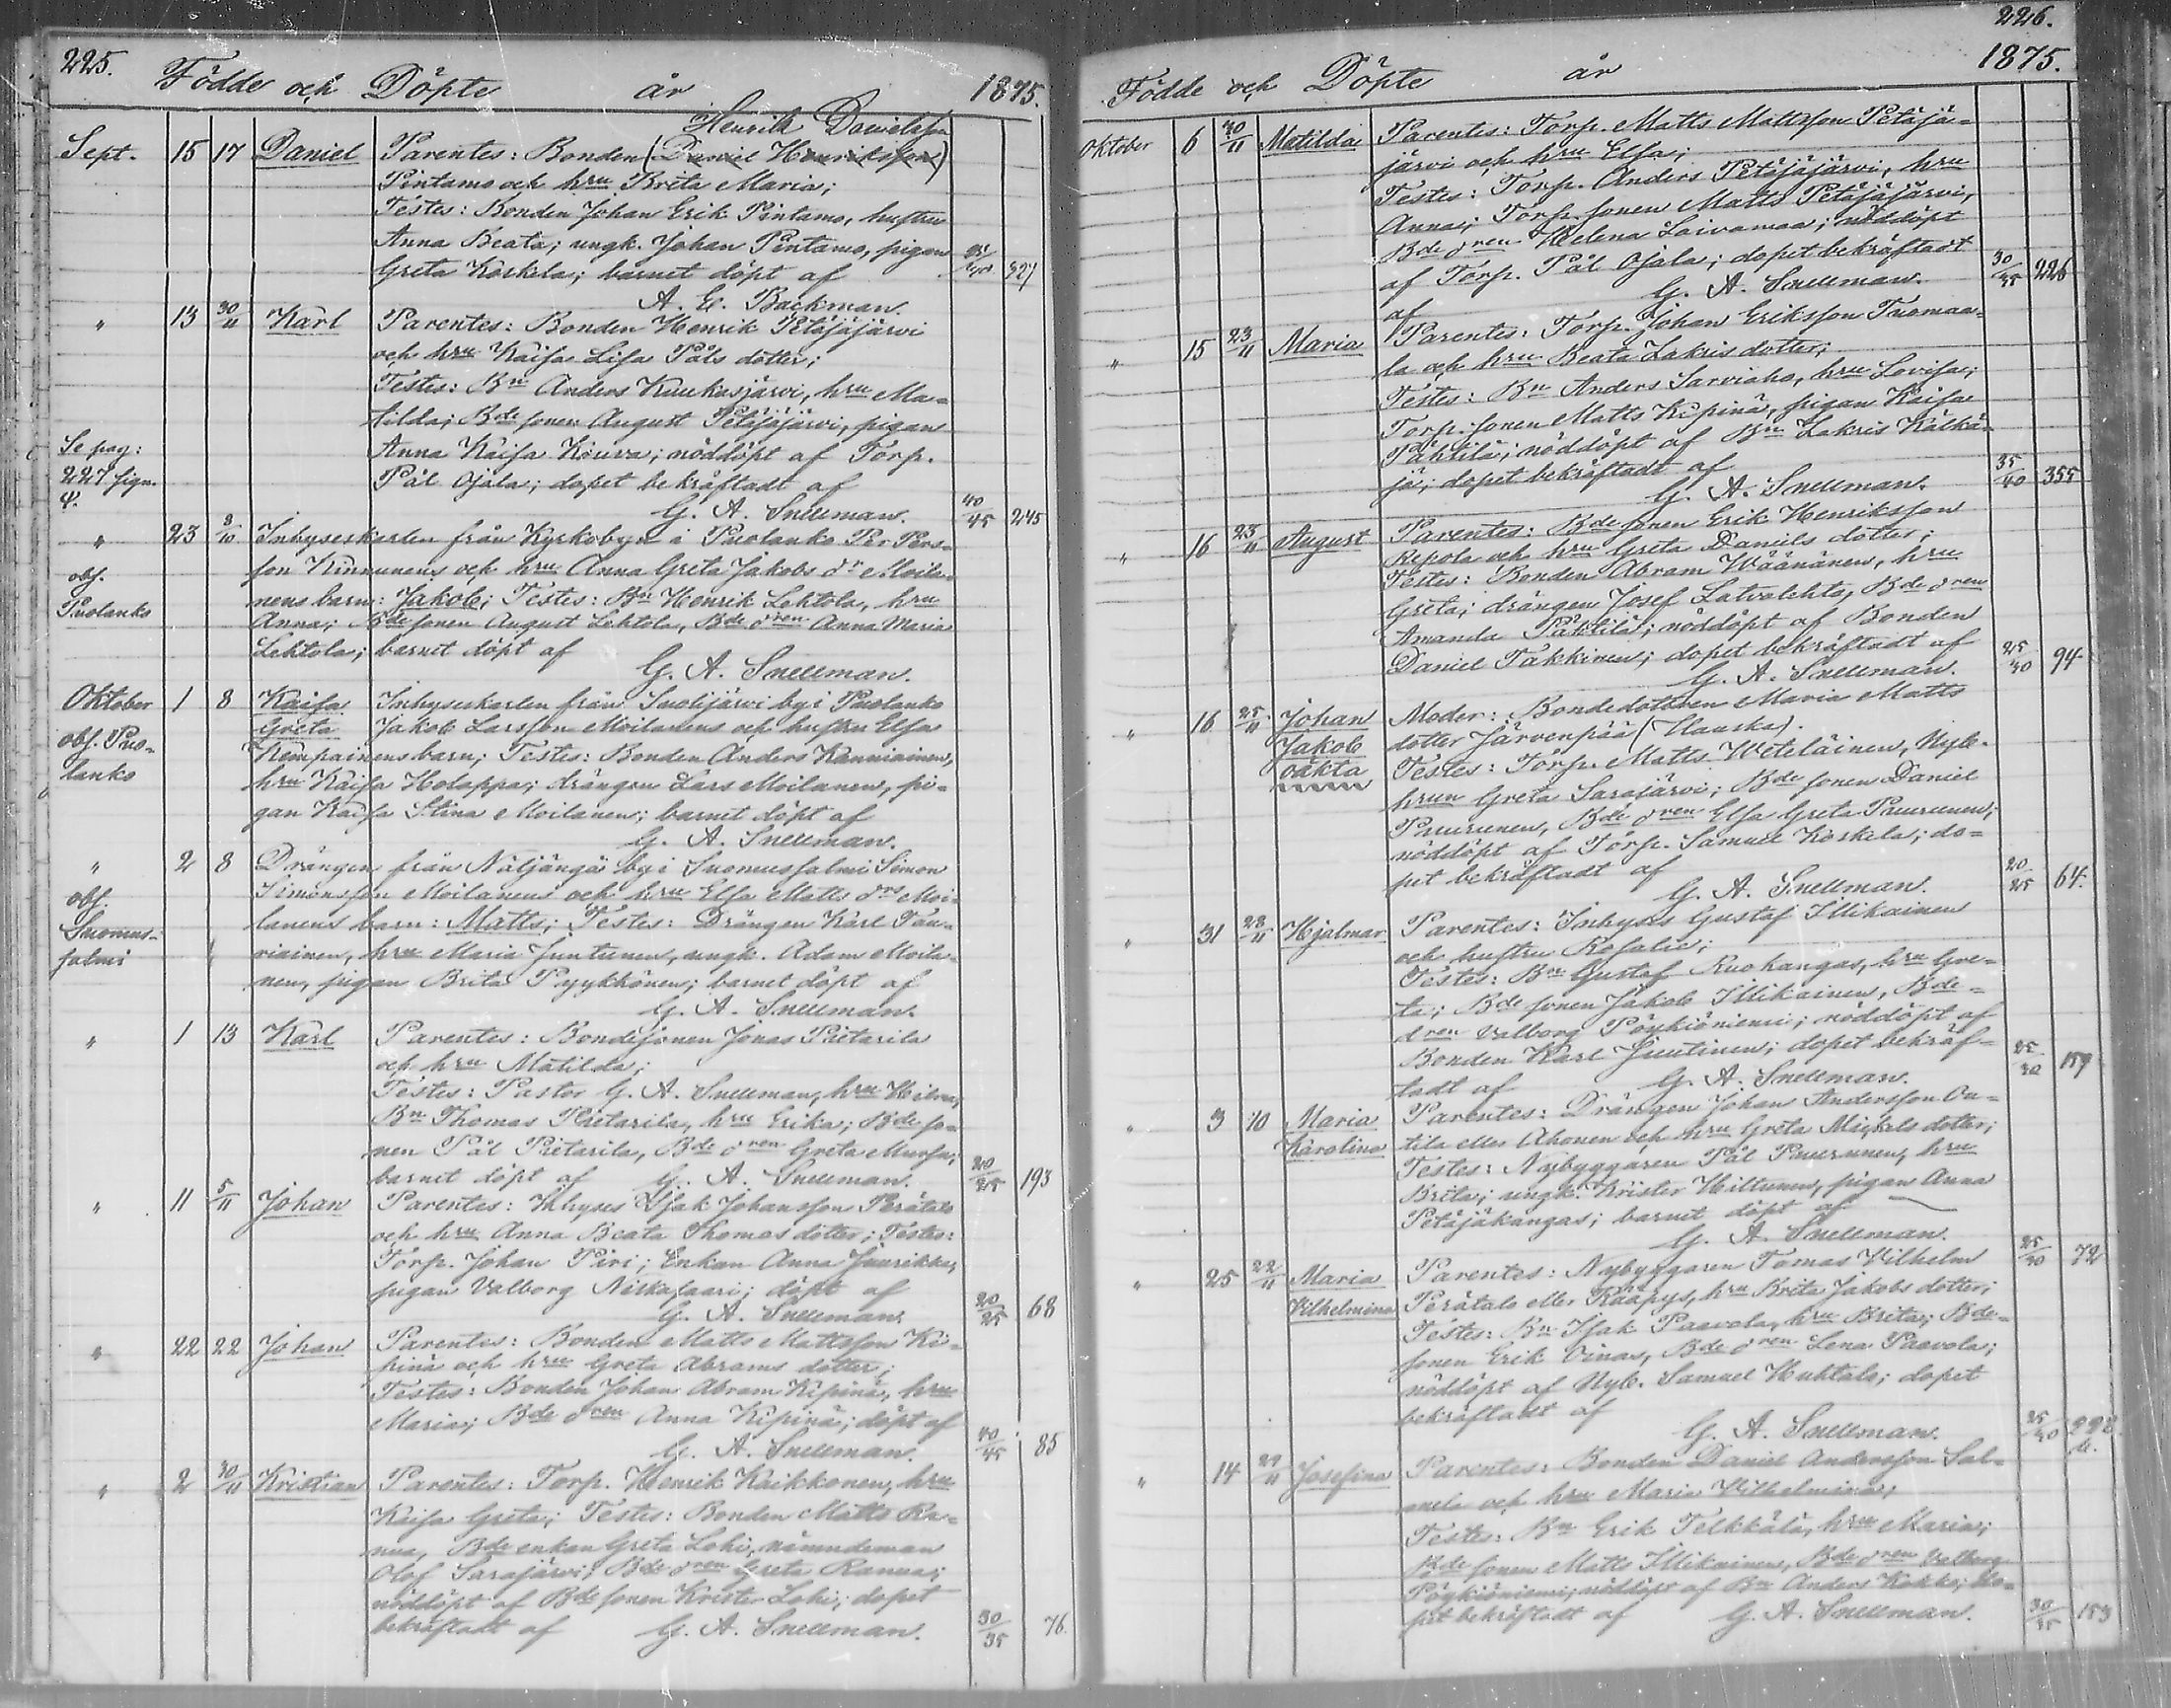 225.
Födde och Döpte år 1875.
Henrik Danielsson
Sept. 15 17 Daniel Parentes: Bonden (Daniel Henriksson)
Pintamo och hru Brita Maria;
Testes: Bonden Johan Erik Pintamo, hustru
Anna Beata; ungk. Johan Pintamo, pigan
Greta Koskela; barnet döpt af
A. E. Backman.
" 13 30/11 Karl Parentes: Bonden Henrik Petäjäjärvi
och hru Kaisa Lisa Påls dotter;
Testes: Bn Anders Kuukasjärvi, hru Ma-
tilda; Bde sonen August Petäjäjärvi, pigan
Anna Kaisa Kouva; nöddöpt af Torp.
Pål Ojala; dopet bekräftadt af
G. A. Snellman. 40/45 245
Se pag:
227 sign.
" 23 8/10 Inhyseskarlen från Kyrkobyn i Puolanko Per Pers-
son Kinnunens och hru Anna Greta Jakobs dr Moila-
nens barn: Jakob; Testes: Bn Henrik Lehtola, hru
Anna; Bde sonen August Lehtola, Bde dren Anna Maria
Lehtola; barnet döpt af
G. A. Snellman.
obs.
Puolanko
Oktober 1 8 Kaisa Inhyseskarlen från Suolijärvi by i Puolanko
Greta Jakob Larsson Moilanens och hustru Elsa
Kempainens barn; Testes: Bonden Anders Kanniainen,
hru Kaisa Holappa; drängen Lars Moilanen, pi-
gan Kaisa Stina Moilanen; barnet döpt af
G. A. Snellman.
obs. Puo-
lanko
" 2 8 Drängen från Näljängä by i Suomussalmi Simon
Simonsson Moilanens och hru Elsa Matts drs Moi-
lanens barn: Matts; Testes: Drängen Karl Tau-
riainen, hru Maria Juntunen, ungk. Adam Moila-
nen, pigan Brita Pyykkönen; barnet döpt af
G. A. Snellman.
obs.
Suomus-
salmi
" 1 13 Karl Parentes: Bondesonen Jonas Pietarila
och hru Matilda;
Testes: Pastor G. A. Snellman, hru Hilma;
Bn Thomas Pietarila, hru Erika; Bde so-
nen Pål Pietarila, Bde dren Greta Mursu;
barnet döpt af G. A. Snellman. 20/25 193
" 11 5/11 Johan Parentes: Inhyses Isak Johansson Perätalo
och hru Anna Beata Thomas dotter; Testes:
Torp. Johan Piri; Enkan Anna Juurikka,
pigan Valborg Niskasaari; döpt af
G. A. Snellman. 20/25 68
" 22 22 Johan Parentes: Bonden Matts Mattsson Ki-
pinä och hru Greta Abrams dotter;
Testes: Bonden Johan Abram Kipinä, hru
Maria; Bde dren Anna Kipinä; döpt af
G. A. Snellman. 40/45 85
" 2 30/11 Kristian Parentes: Torp. Henrik Kaikkonen, hru
Kaisa Greta; Testes: Bonden Matts Ra-
nua, Bde enkan Greta Lohi, nämndeman
Olof Sarajärvi, Bde dren Greta Ranua;
nöddöpt af Bde sonen Krister Lohi; dopet
bekräftadt af G. A. Snellman. 30/35 76.
226.
Födde och Döpte år 1875.
Oktober 6 30/11 Matilda Parentes: Torp. Matts Mattsson Petäjä-
järvi och hru Elsa;
Testes: Torp. Anders Petäjäjärvi, hru
Anna; Torp. sonen Matts Petäjäjärvi,
Bde dren Helena Loivamaa; nöddöpt
af Torp. Pål Ojala; dopet bekräftadt
af G. A. Snellman. 30/35 226
" 15 23/11 Maria Parentes: Torp. Johan Eriksson Tuomaa-
la och hru Beata Zakris dotter;
Testes: Bn Anders Sarviaho, hru Lovisa;
Torp. sonen Matts Kipinä, pigan Kaisa
Pähtilä; nöddöpt af Bn Zakris Kälkä-
jä; dopet bekräftadt af
G. A. Snellman. 35/40 355
" 16 23/11 August Parentes: Bde sonen Erik Henriksson
Repola och hru Greta Daniels dotter;
Testes: Bonden Abram Wäänänen, hru
Greta; drängen Josef Latvalehto, Bde dren
Amanda Pähtilä; nöddöpt af Bonden
Daniel Takkinen; dopet bekräftadt af
G. A. Snellman. 25/30 94
" 16 25/11 Johan Moder: Bondedottren Maria Matts
Jakob dotter Järvenpää (Hauska).
oäkta Testes: Torp. Matts Weteläinen, Nyb.
hrun Greta Sarajärvi; Bde sonen Daniel
Puurunen, Bde dren Elsa Greta Puurunen;
nöddöpt af Torp. Samuel Koskela; do-
pet bekräftadt af
G. A. Snellman. 20/25 64.
" 31 28/11 Hjalmar Parentes: Inhyses Gustaf Illikainen
och hustru Rosalie;
Testes: Bn Gustaf Ruokangas, hru Gre-
ta; Bde sonen Jakob Illikainen, Bde-
dren Valborg Pöykiöniemi; nöddöpt af
Bonden Karl Juutinen; dopet bekräf-
tadt af G. A. Snellman. 25/30 159
" 3 10 Maria Parentes: Drängen Johan Andersson Ou-
Karolina tila eller Ahonen och hru Greta Michals dotter;
Testes: Nybyggaren Pål Puurunen, hru
Brita; ungk. Krister Hiltunen, pigan Anna
Petäjäkangas; barnet döpt af
G. A. Snellman. 25/30 72
" 25 22/11 Maria Parentes: Nybyggaren Tomas Vilhelm
Vilhelmina Perätalo eller Kääpys, hru Brita Jakobs dotter;
Testes: Bn Isak Paavola, hru Brita; Bde-
sonen Erik Vinas, Bde dren Lena Paavola;
nöddöpt af Nyb. Samuel Huhtalo; dopet
bekräftadt af
G. A. Snellman. 25/30
" 14 Josefina Parentes: Bonden Daniel Andersson Sal-
mela och hru Maria Vilhelmina;
Testes: Bn Erik Telkkälä, hru Maria;
Bde sonen Matts Illikainen, Bde dren Valborg
Pöykiöniemi; nöddöpt af Bn Anders Kokko; do-
pet bekräftadt af G. A. Snellman. 30/35 153